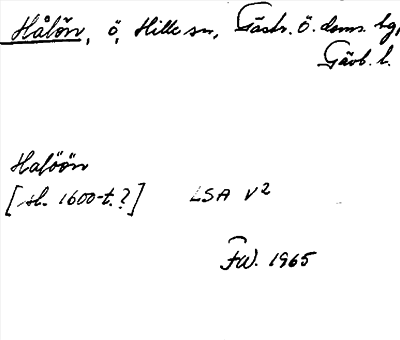 Hålön, ö, Hille sn, Gästr. ö. doms. hg,
Gävb. l.
Haföön
[sl. 1600-t.?] LSA V2
FW. 1965